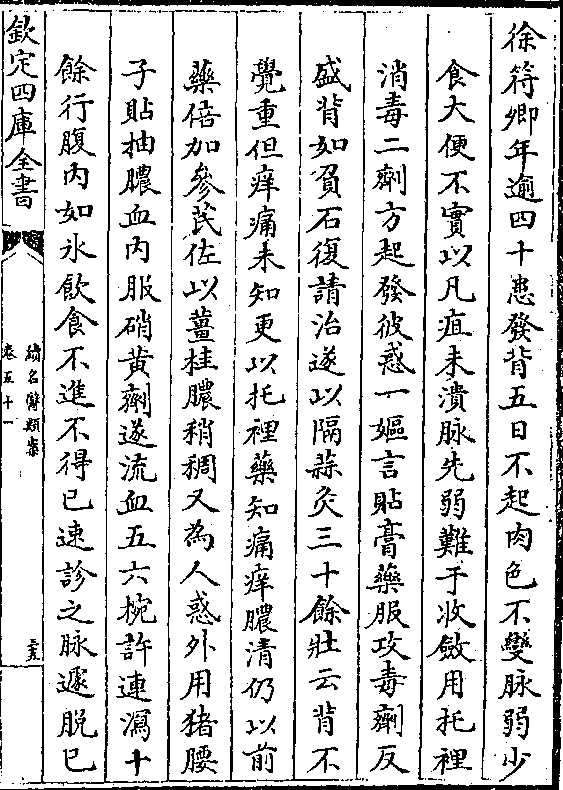 徐符卿年逾四十患發背五日不起肉色不變脉弱少
食大便不實以凡疽未潰脉先弱難于收斂用托裡
消毒二劑方起發彼惑一嫗言貼膏藥服攻毒劑反
盛背如負石復請治遂以隔蒜灸三十餘壯云背不
覺重但痒痛未知更以托裡藥知痛痒膿清仍以前
藥倍加參芪佐以薑桂膿稍稠又為人惑外用猪腰
子貼抽膿血内服硝黄劑遂流血五六椀許連瀉十
餘行腹内如氷飲食不進不得已速診之脉遽脱已
欽定四庫全書
續名醫類案
卷五十一